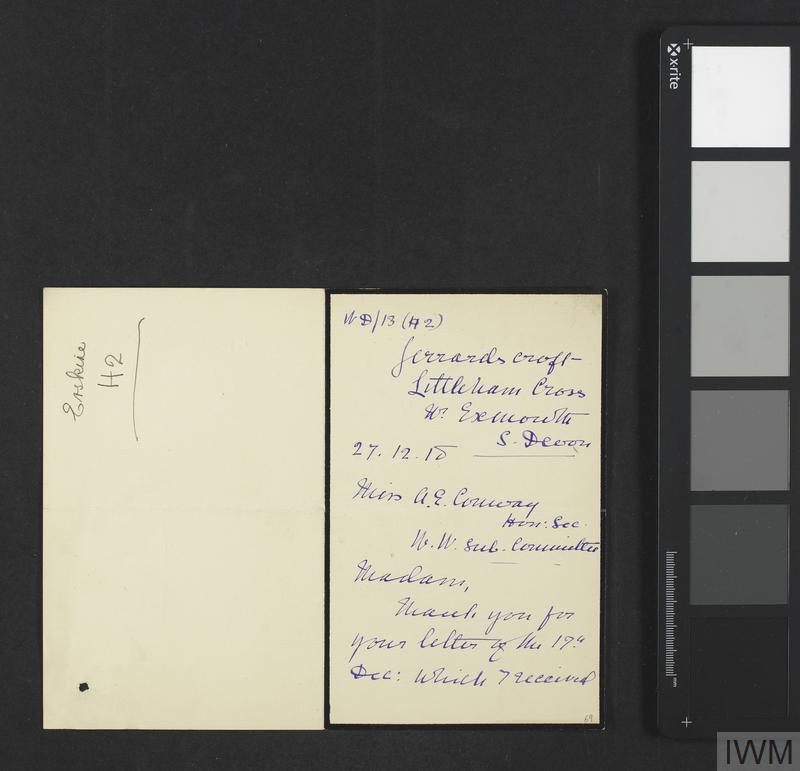 Erskine
H2
WD/13 (H2)
Gerrardscroft
Littleham Cross
Nr. Exmouth
S. Devon
27.12.18
Miss A.E. Conway
Hon: Sec.
W.W. Sub. Committee
Madam,
Thank you for
your letter of the 17th
Dec: which I received
69
x-rite
mm
IWM